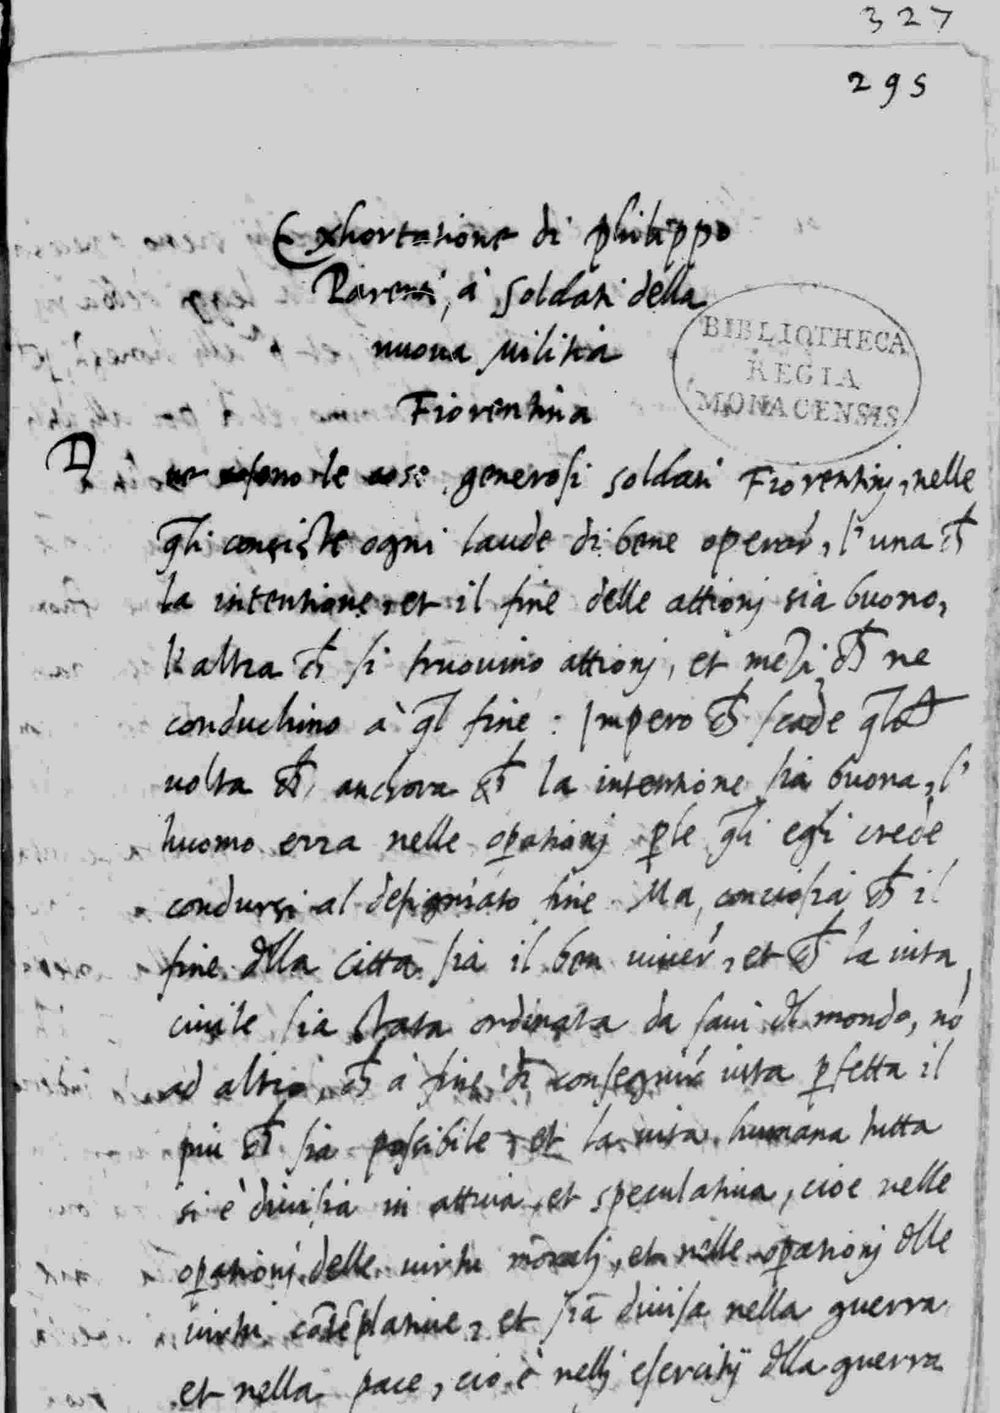 327
295
Exhortatione di philippo
Parenti, à soldati della
nuova militia
Fiorentina
BIBLIOTHECA
REGIA
MONACENSIS
Due sono le cose, generosi soldati Fiorentinj, nelle
q̃li consiste ogni laude di bene operar̃, l'una ch̃
la intentione, et il fine delle attionj sia buono,
l'altra ch̃ si truovino attionj, et mezi, ch̃ ne
conduchino à q̃l fine: Impero ch̃ scade q̃lch̃
volta ch̃, anchora ch̃ la intentione sia buona, l'
huomo erra nelle op̃ationj p̱le q̃li egli crede
condursi al designiato fine. Ma, conciosia ch̃ il
fine d̃lla Citta sia il ben viver̃, et ch̃ la vita
civile sia stata ordinata da savi d̃l mondo, nõ
ad altro, ch̃ à fine di conseguir̃ vita p̱fetta il
piu ch̃ sia possibile, et la vita humana tutta
si è divisia in attiva, et speculativa, cioe nelle
op̃ationj delle virtu moralj, et nelle op̃ationj d̃lle
virtu cõtẽplative, et sia divisa nella guerra
et nella pace, cio è nellj esercitij d̃lla guerra